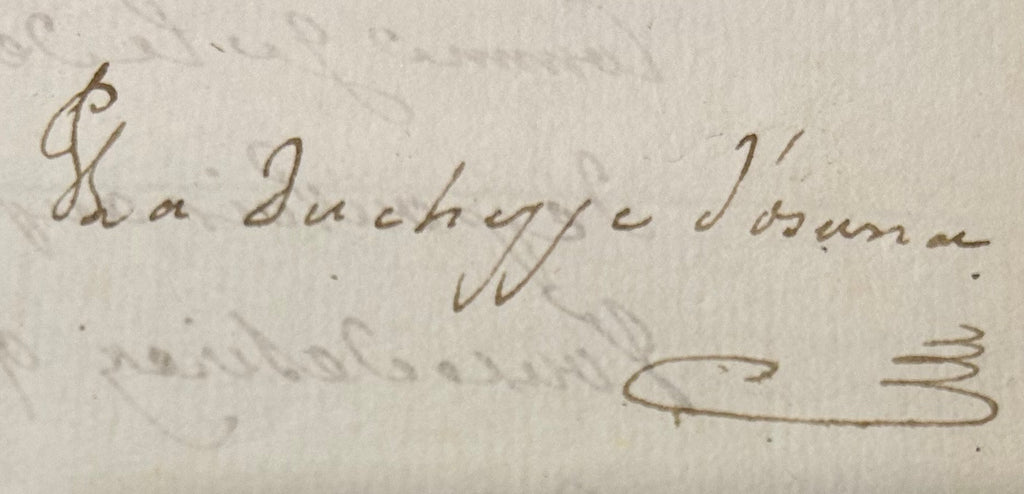 La Duchesse d'ósuna